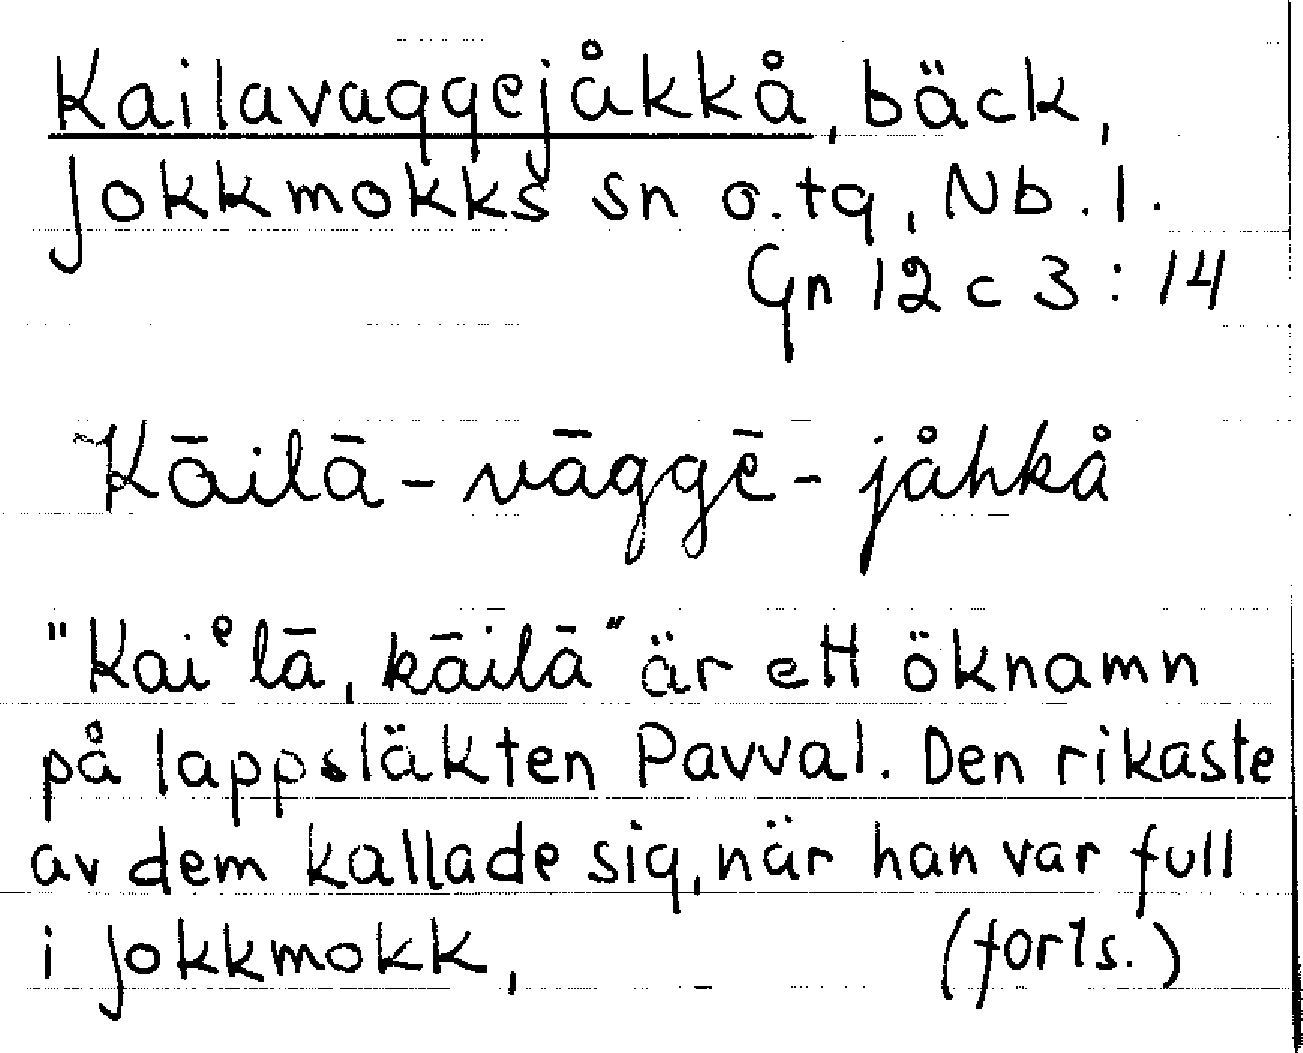 Kailavaggejåkkå, bäck,
Jokkmokks sn o. tg, Nb. l.
Gn 12 c 3 : 14
Kāilā-vāggē-jåhkå
"Kaiᵉlā, kāilā" är ett öknamn
på lappsläkten Pavval. Den rikaste
av dem kallade sig, när han var full
i Jokkmokk, (forts.)